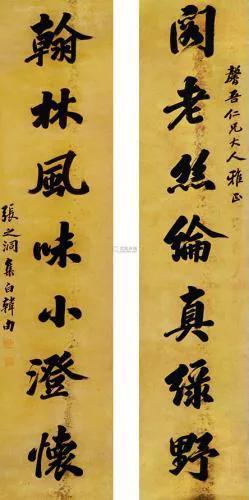 馨吾仁兄大人雅正
閣老絲綸真綠野
翰林風味小澄懷
張之洞集白韓句